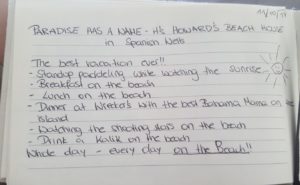 11/10/17
PARADISE HAS A NAME - It's HOWARD'S BEACH HOUSE
in Spanish Wells
The best vacation ever!!
- Standup paddeling while watching the sunrise
- Breakfast on the beach
- Lunch on the beach
- Dinner at Wrecker's with the best Bahama Mama on the
island
- Watching the shooting stars on the beach
- Drink a Kalik on the beach
Whole day - every day on the Beach!!